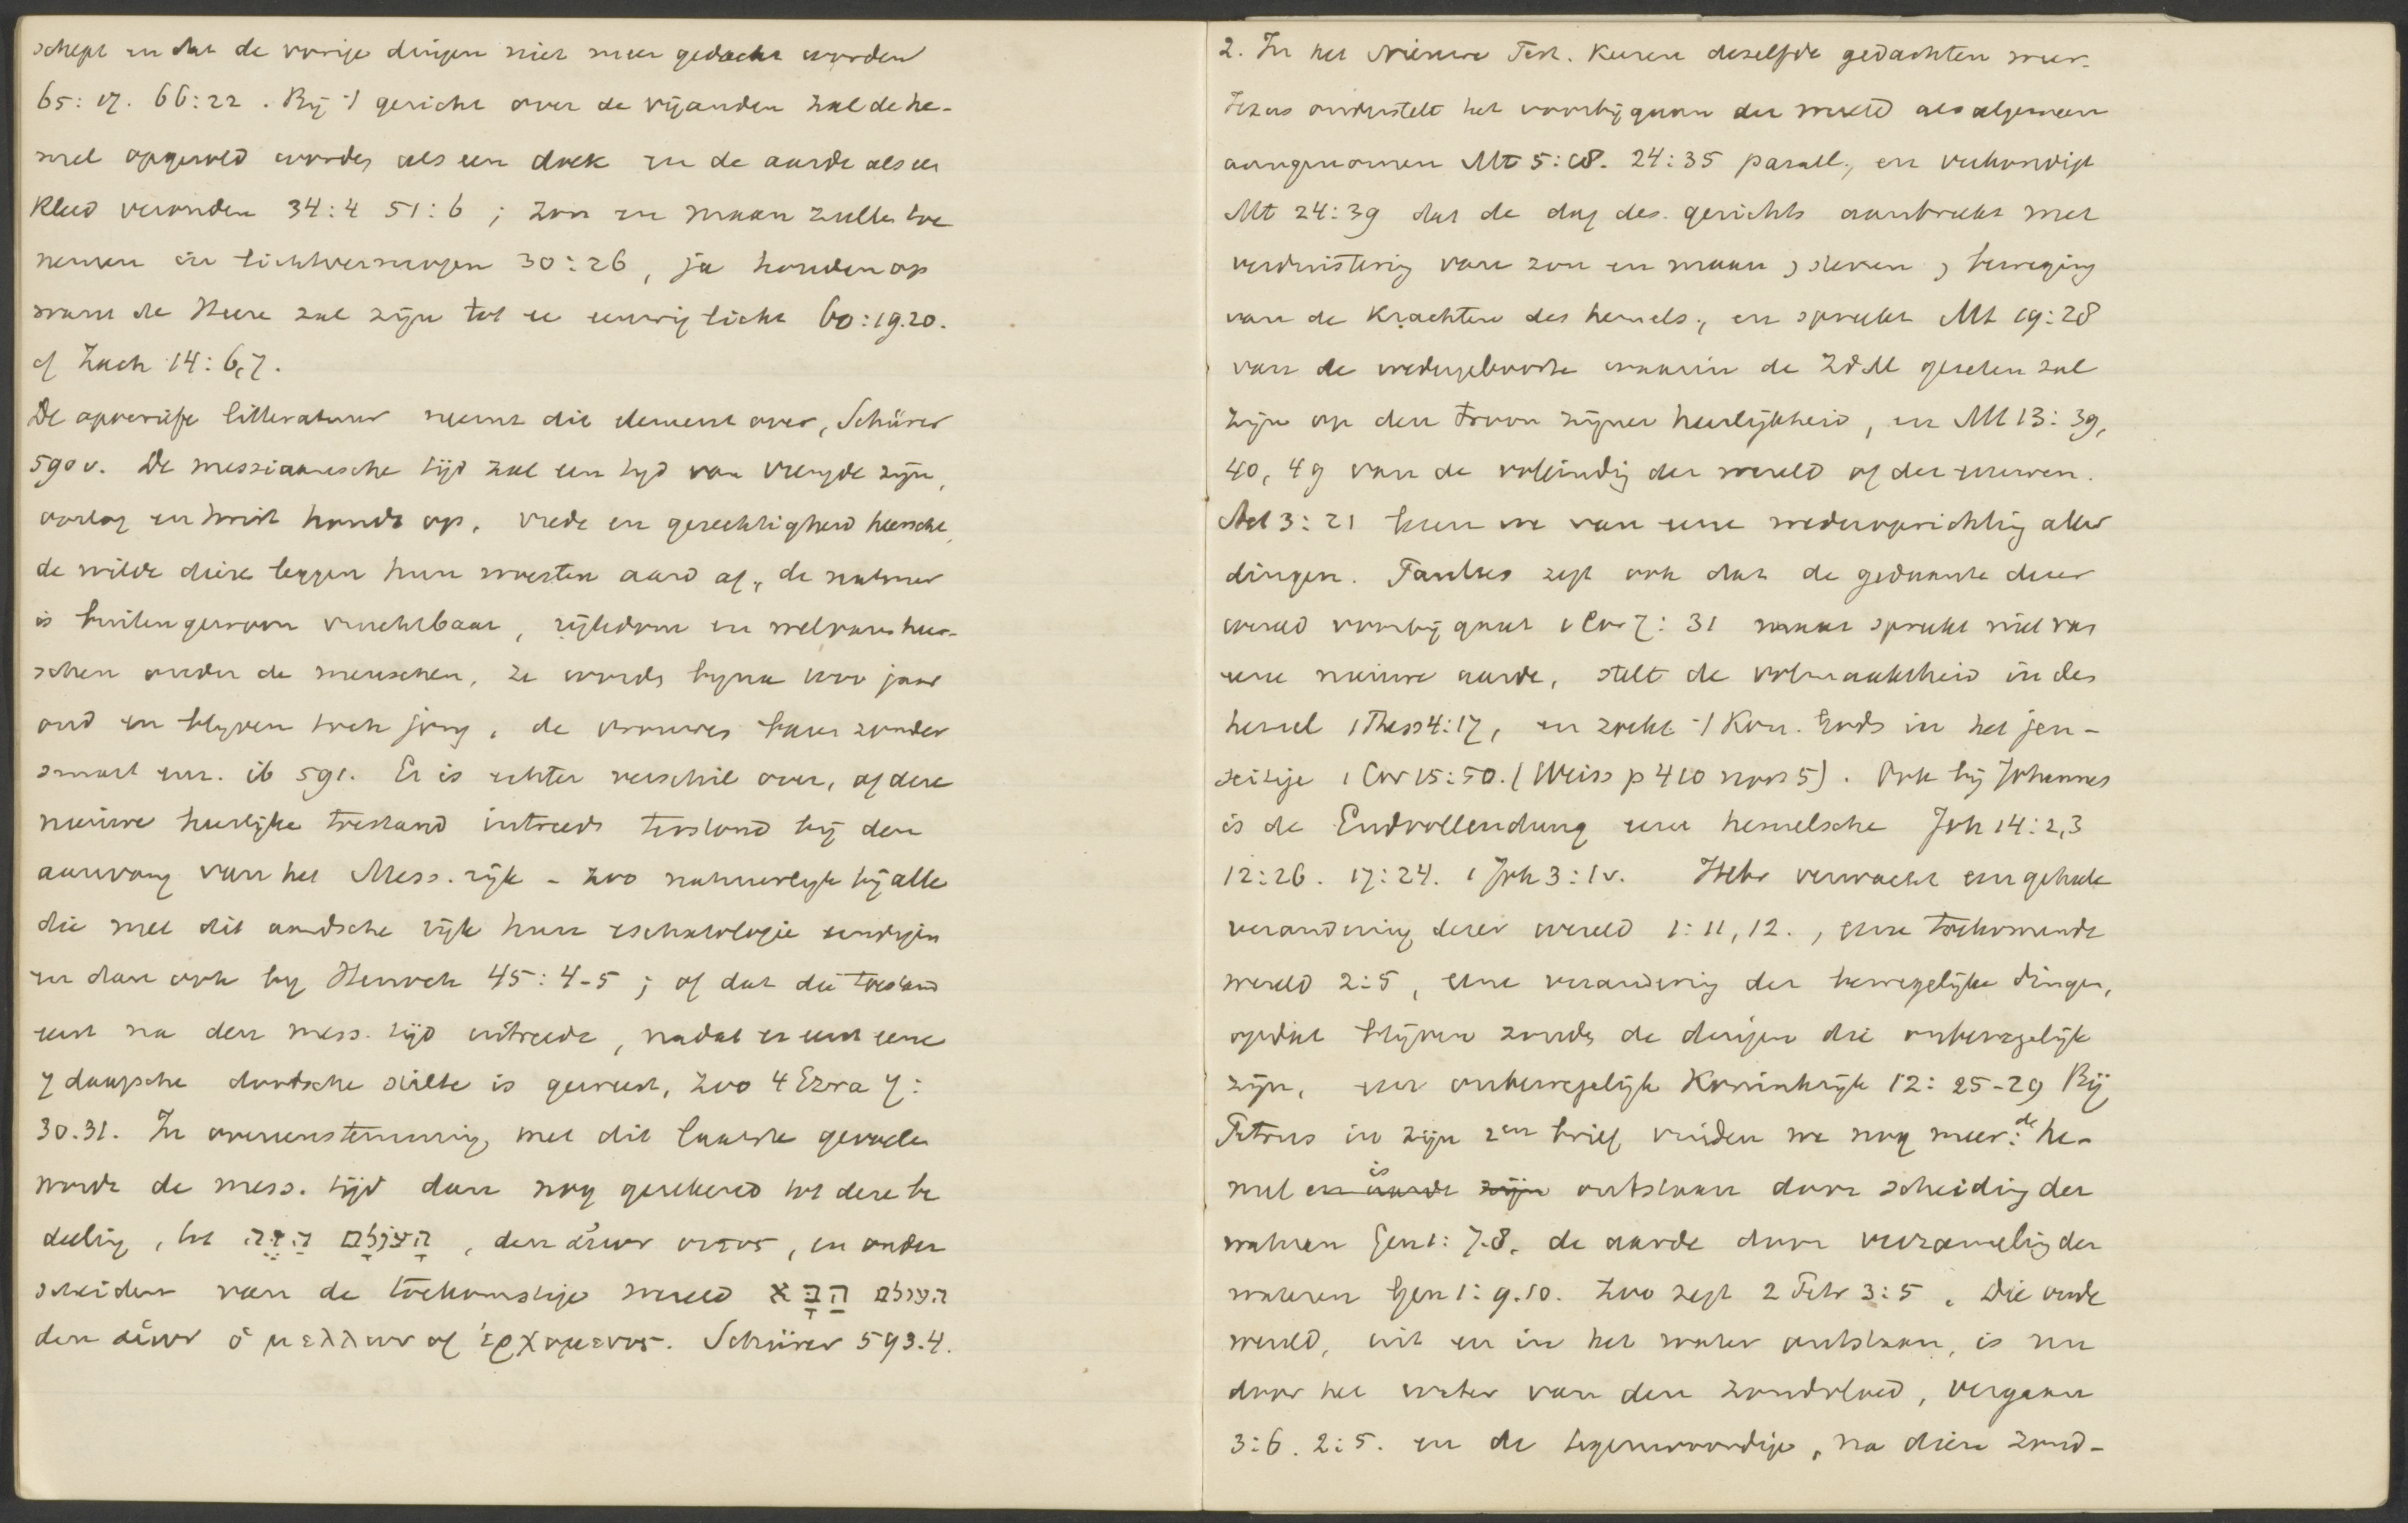 schept en dat de vorige dingen niet meer gedacht worden
65:17. 66:22. Bij 't gericht over de vijanden zal de he-
mel opgerold worden als een doek en de aarde als een
kleed verouden 34:4 51:6; zon en maan zullen toe
nemen in lichtvermogen 30:26, ja houden op
want de Heere zal zijn tot ee eeuwig licht 60:19.20.
cf Zach 14:6,7.
De apocriefe litteratuur neemt die element over, Schürer
590v. De messiaansche tijd zal een tijd van vreugde zijn,
oorlog en twist houdt op, vrede en gerechtigheid heersche,
de wilde diere leggen hun woesten aard af, de natuur
is buitengewoon vruchtbaar, rijkdom en welvaart heer-
schen onder de menschen, ze worde bijna 1000 jaar
oud en blijven toch jong, de vrouwen baren zonder
smart enz. ib 591. Er is echter verschil over, of deze
nieuwe heerlijke toestand intreedt terstond bij den
aanvang van het Mess. rijk - zoo natuurlijk bij alle
die met dit aardsche rijk hun eschatologie eindigen
en dan ook by Henoch 45:4-5; of dat die toestand
eerst na den mess. tijd intrede, nadat er eerst eene
7 daagsche doodsche stilte is geweest, zoo 4 Ezra 7:
30.31. In overeenstemming met dit laatste gevoelen
wordt de mess. tijd dan nog gerekend tot deze be
deeling, tot העולם הזה, den αἰων ουτος, en onder
scheiden van de toekomstige wereld העולם הבא
den αἰων ὁ μελλων of ἐρχομενος. Schürer 593.4.
2. In het Nieuwe Test. keeren dezelfde gedachten weer.
Jezus onderstelt het voorbijgaan der wereld als algemeen
aangenomen Mt 5:18. 24:35 parall., en verkondigt
Mt 24:39 dat de dag des. gerichts aanbreekt met
verduistering van zon en maan, sterren, beweging
van de krachten des hemels., en spreekt Mt 19:28
van de wedergeboorte waarin de ZdM gezeten zal
zijn op den troon zijner heerlijkheid, en Mt 13:39,
40, 49 van de voleinding der wereld of der eeuwen.
Act 3:21 lezen we van eene wederoprichting aller
dingen. Paulus zegt ook dat de gedaante dezer
wereld voorbij gaat 1 Cor 7:31 maar spreekt niet van
eene nieuwe aarde, stelt de volmaaktheid in den
hemel 1 Thess 4:17, en zoekt 't Kon. Gods in het jen-
seitige 1 Cor 15:50. (Weiss p 410 noot 5). Ook bij Johannes
is de Endvollendung eene hemelsche Joh 14:2,3
12:26. 17:24. 1 Joh 3:1v. Hebr verwacht eene geheele
verandering dezer wereld 1:11,12., eene toekomende
wereld 2:5, eene verandering der bewegelijke dingen,
opdat blijven zoude de dingen die onbewegelijk
zijn, een onbewegelijk Koninkrijk 12:25-29 Bij
Petrus in zijn 2en brief vinden we nog meer: de he-
mel en aarde zijn is ontstaan door scheiding der
wateren Gen 1:7.8. de aarde door verzameling der
wateren Gen 1:9.10. Zoo zegt 2 Petr 3:5. Die oude
wereld, uit en in het water ontstaan, is nu
door het water van den zondvloed, vergaan
3:6. 2:5. en de tegenwoordige, na dien zond-